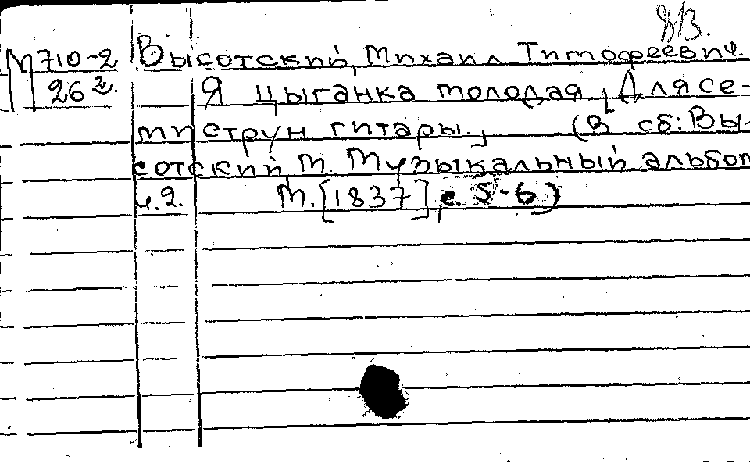 8/3.
М710-2 Высотский, Михаил Тимофеевич.
26 2. Я цыганка молодая, [Для се-
ми струн гитары.] (В сб: Вы-
сотский, М. Музыкальный альбом
ч.2. М. [1837], с. 5-6)